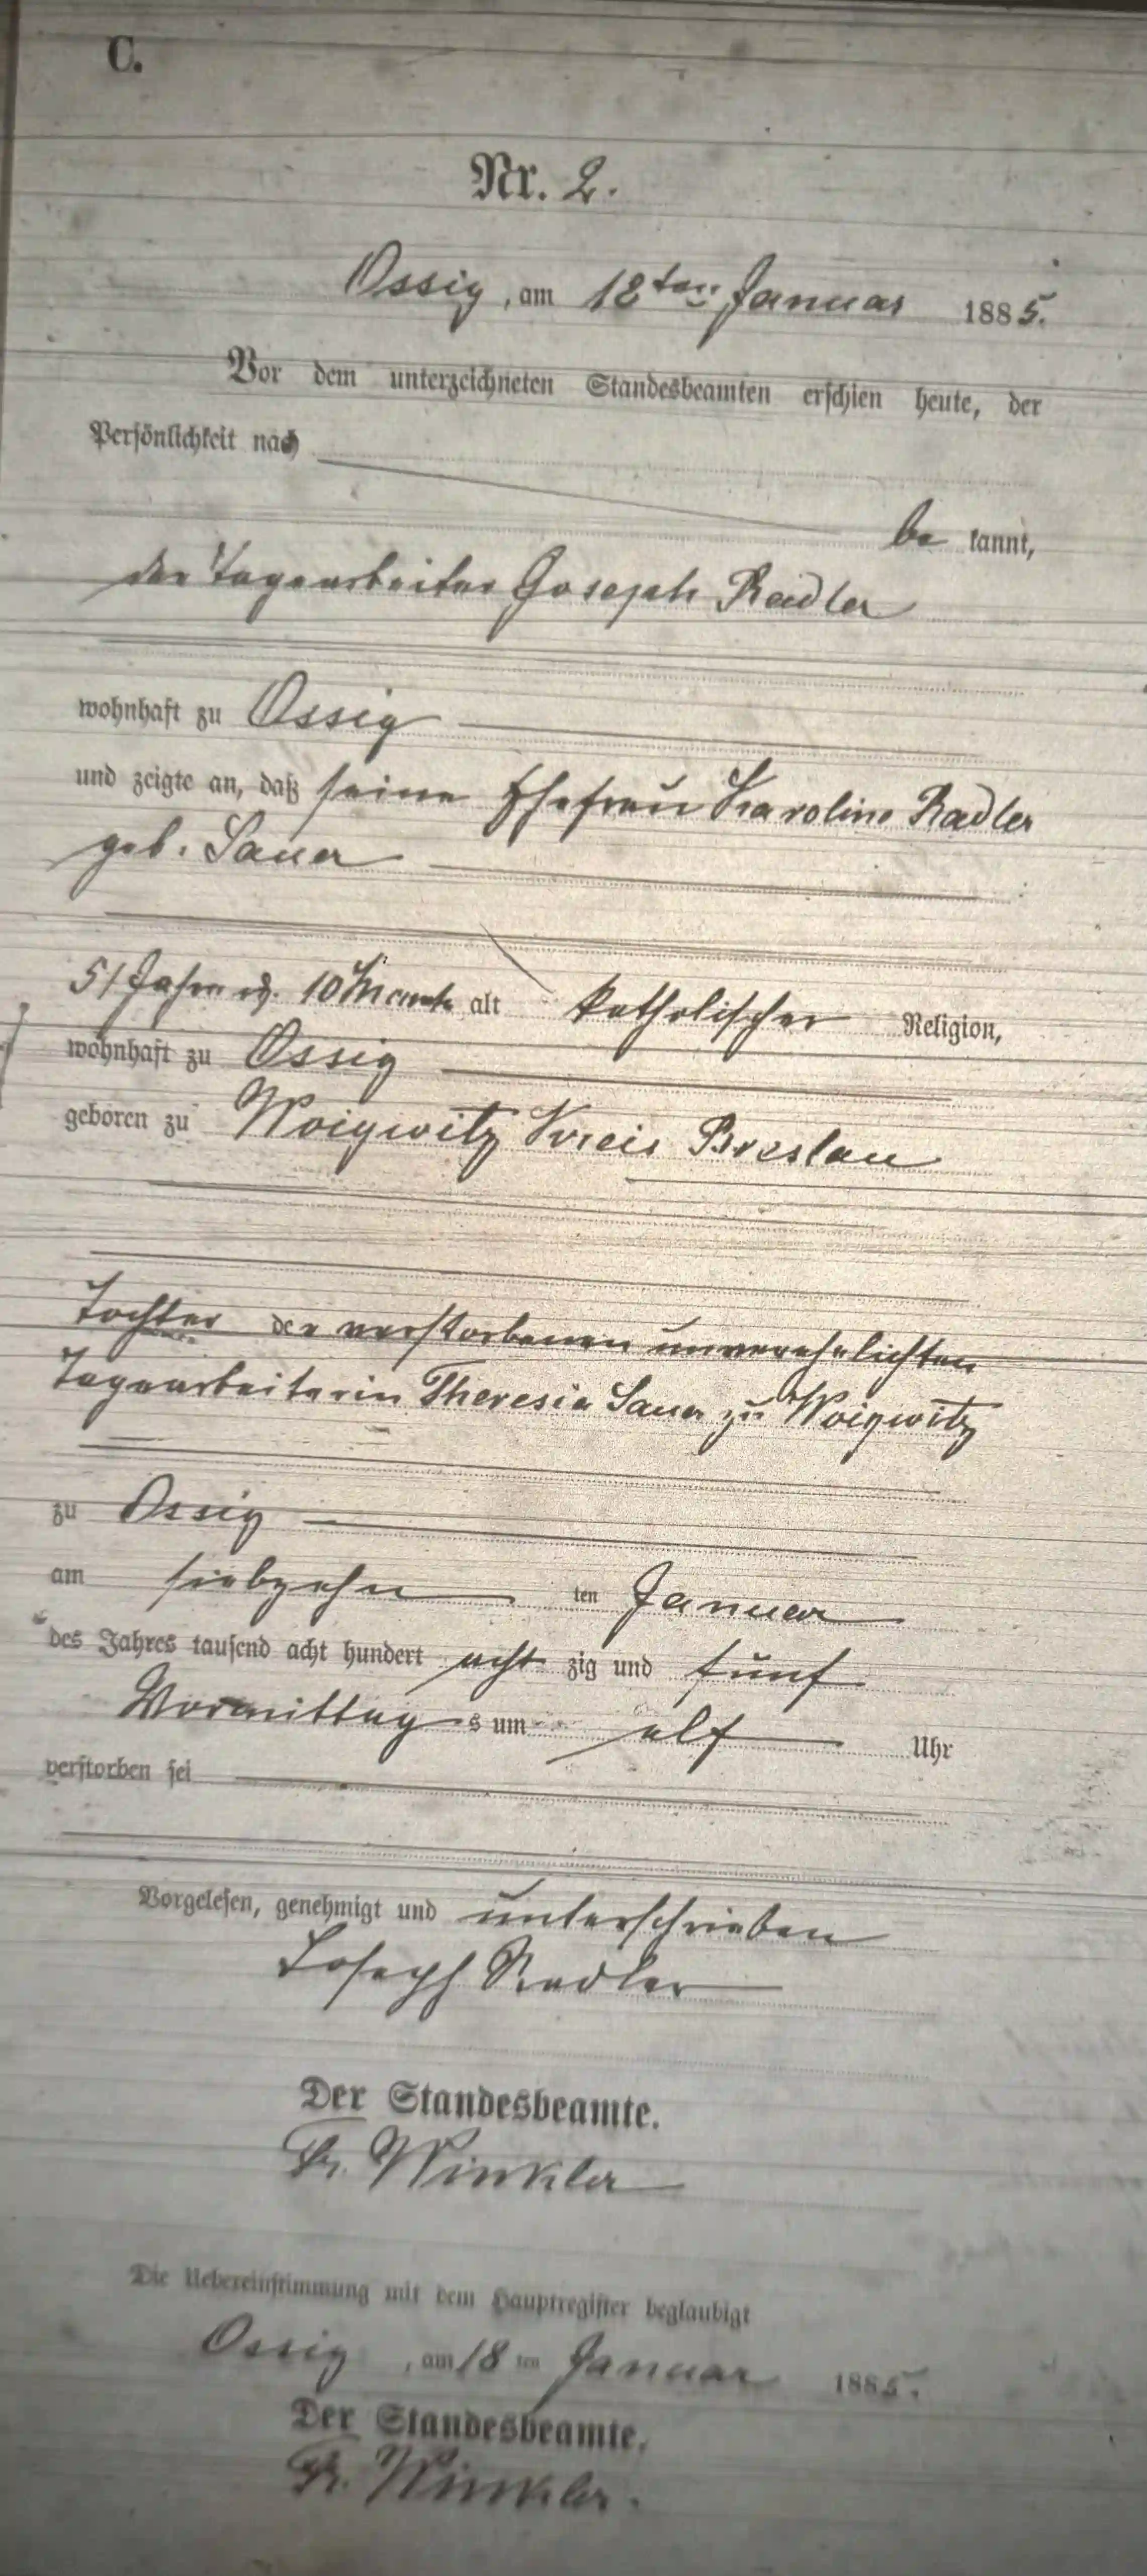 C.
Nr. 2.
Ossig, am 18ten Januar 1885.
Vor dem unterzeichneten Standesbeamten erschien heute, der
Persönlichkeit nach
be kannt,
der Tagearbeiter Joseph Radler
wohnhaft zu Ossig
und zeigte an, daß seine Ehefrau Karoline Radler
geb. Sauer
51 Jahre u. 10 Monate alt katholischer Religion,
wohnhaft zu Ossig
geboren zu Woigwitz Kreis Breslau
Tochter der verstorbenen unverehelichten
Tagearbeiterin Theresia Sauer zu Woigwitz
zu Ossig
am siebzehn ten Januar
des Jahres tausend acht hundert acht zig und fünf
Vormittag s um elf Uhr
verstorben sei
Vorgelesen, genehmigt und unterschrieben
Joseph Radler
Der Standesbeamte.
Fr. Winkler
Die Uebereinstimmung mit dem Hauptregister beglaubigt
Ossig, am 18 ten Januar 1885.
Der Standesbeamte.
Fr. Winkler.